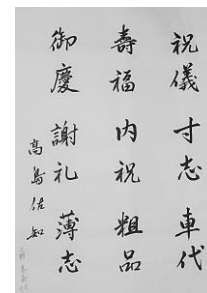 祝儀 寸志 車代
壽福 内祝 粗品
御慶 謝礼 薄志
高島佐知